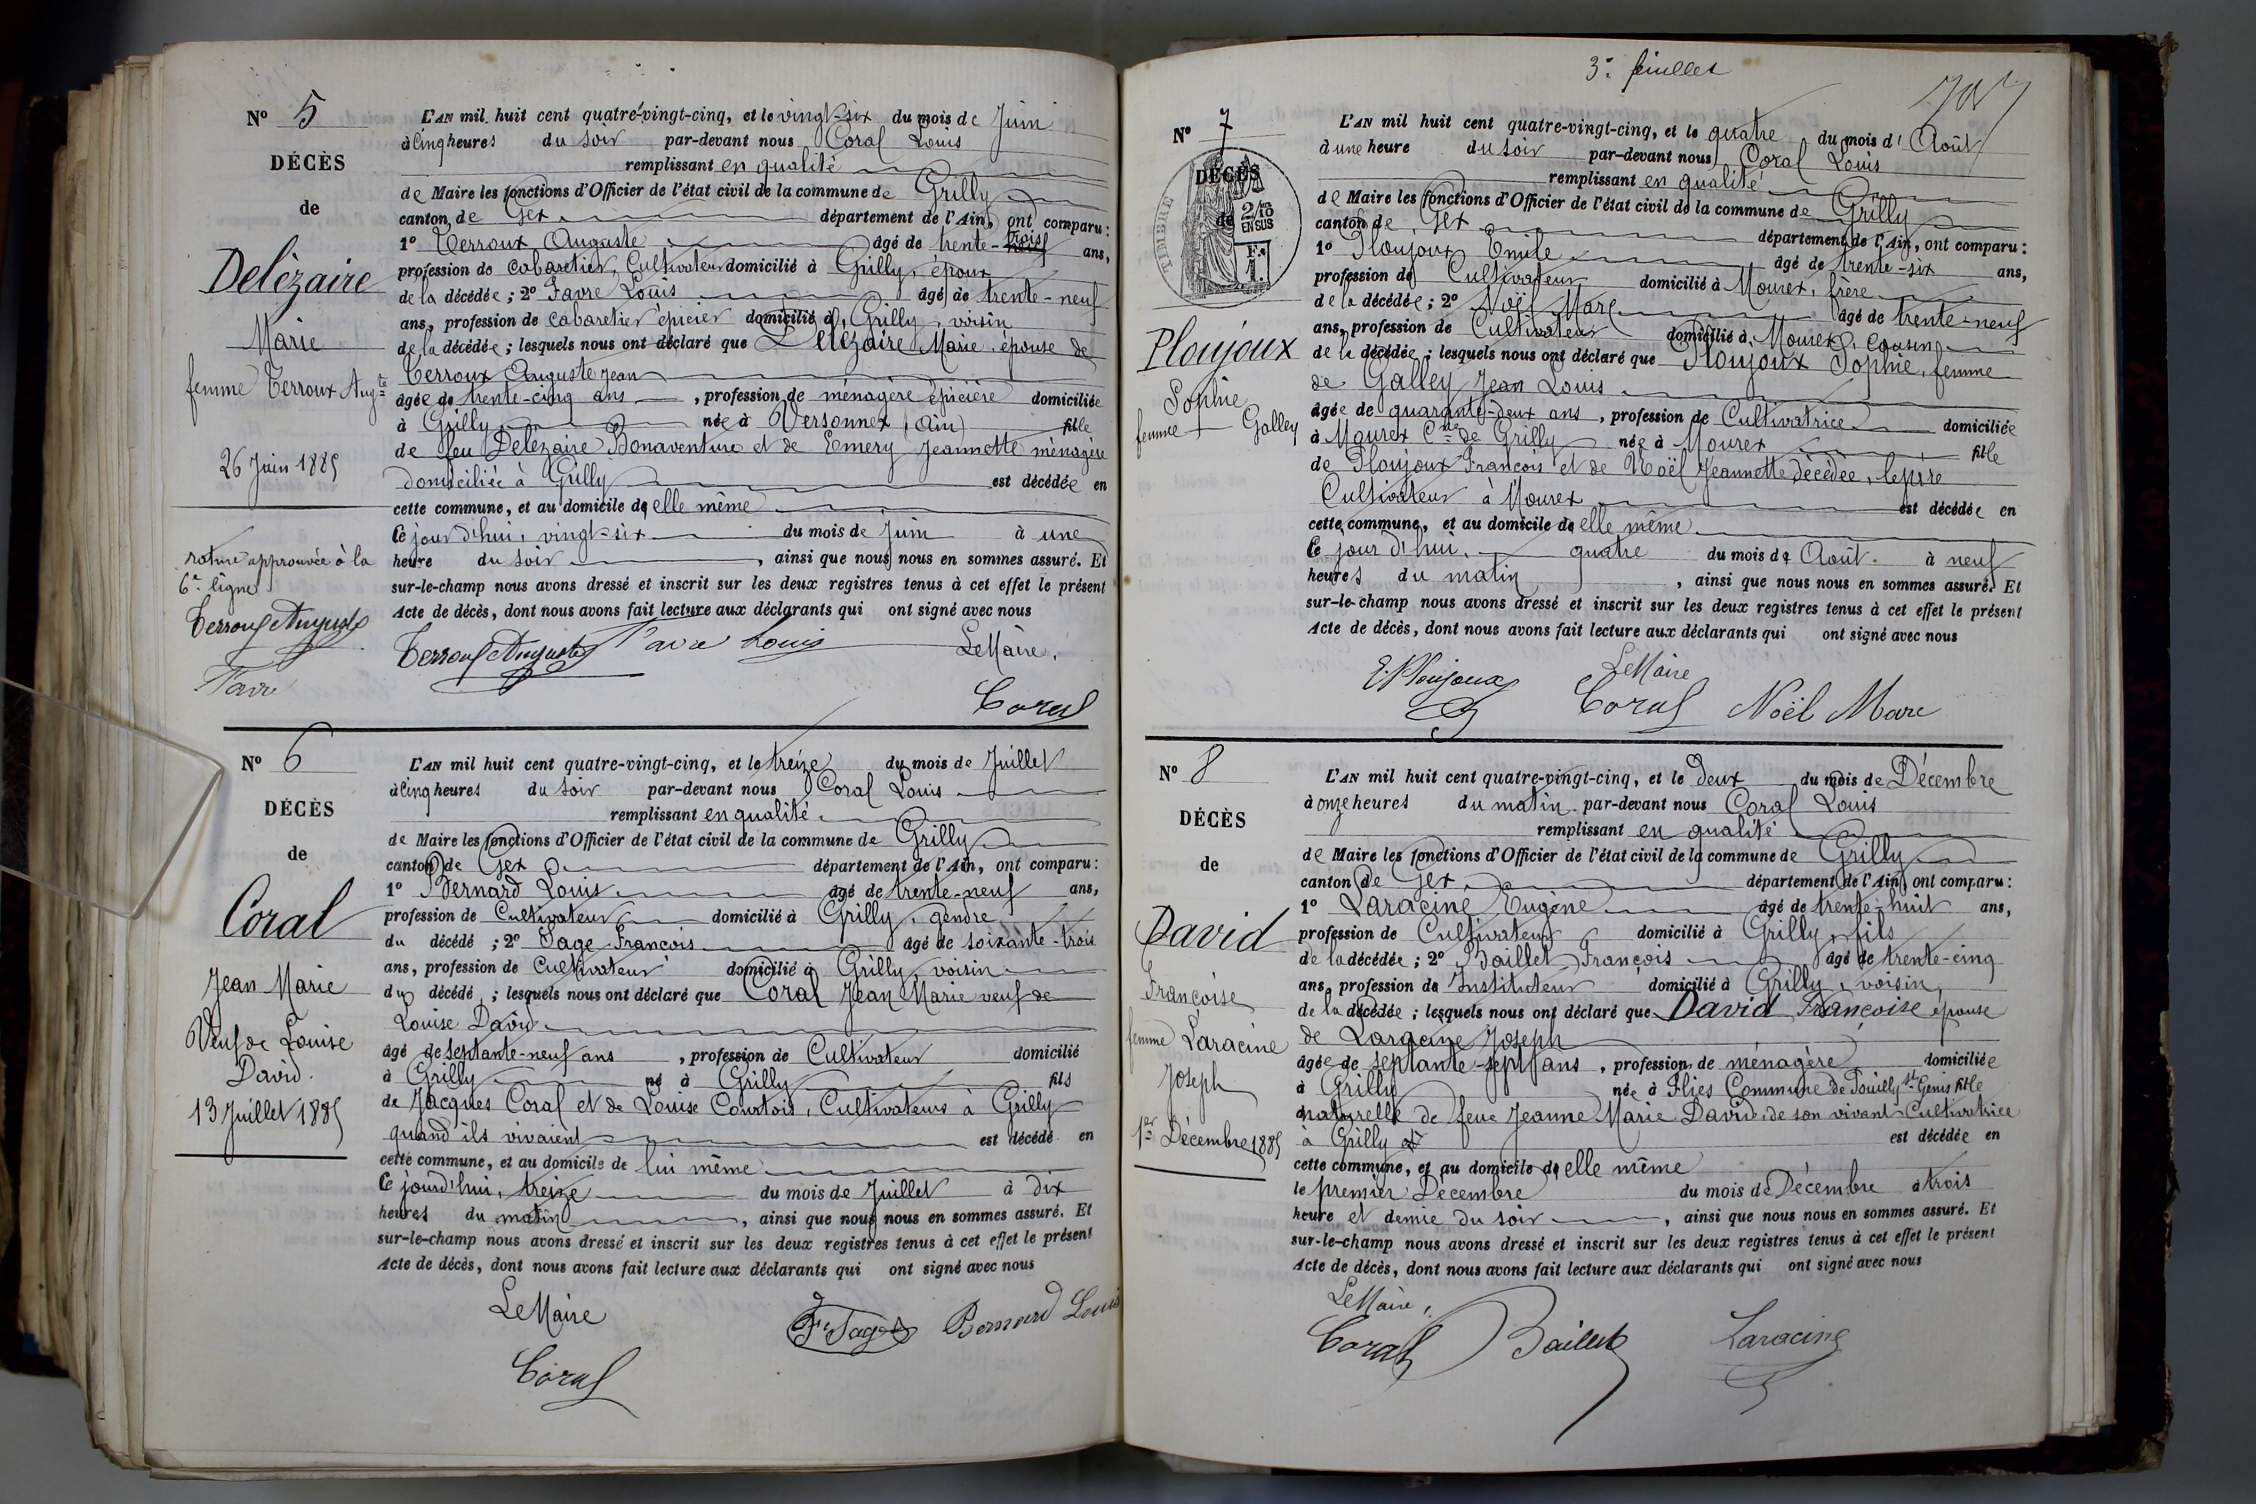 N° 5
DÉCÈS
de
Delézaire
Marie
femme Terroux Aug.te
26 Juin 1885
rature approuvée à la
6e ligne
Terroux Auguste
Favre
L'AN mil huit cent quatre-vingt-cinq, et le vingt-six du mois de Juin
à Cinq heures du soir par-devant nous Coral Louis
remplissant en qualité
de Maire les fonctions d'Officier de l'état civil de la commune de Grilly
canton de Gex département de l'Ain, ont comparu :
1° Terroux Auguste âgé de trente-trois ans,
profession de cabaretier, Cultivateur domicilié à Grilly, époux
de la décédée ; 2° Favre Louis âgé de trente-neuf
ans, profession de cabaretier épicier domicilié à Grilly, voisin
de la décédée ; lesquels nous ont déclaré que Delézaire Marie, épouse de
Terroux Auguste Jean
âgée de trente-cinq ans , profession de ménagère épicière domiciliée
à Grilly née à Versonnex (Ain) fille
de feu Delézaire Bonaventure et de Emery Jeannette ménagère
domiciliée à Grilly est décédée en
cette commune, et au domicile de elle même
Ce jourd'hui, vingt-six du mois de Juin à une
heure du soir , ainsi que nous nous en sommes assuré. Et
sur-le-champ nous avons dressé et inscrit sur les deux registres tenus à cet effet le présent
Acte de décès, dont nous avons fait lecture aux déclarants qui ont signé avec nous
Terroux Auguste Favre Louis Le Maire,
Coral
N° 6
DÉCÈS
de
Coral
Jean Marie
Veuf de Louise
David.
13 Juillet 1885
L'AN mil huit cent quatre-vingt-cinq, et le treize du mois de Juillet
à Cinq heures du soir par-devant nous Coral Louis
remplissant en qualité
de Maire les fonctions d'Officier de l'état civil de la commune de Grilly
canton de Gex département de l'Ain, ont comparu :
1° Bernard Louis âgé de trente-neuf ans,
profession de Cultivateur domicilié à Grilly, gendre
du décédé ; 2° Sage François âgé de soixante-trois
ans, profession de Cultivateur domicilié à Grilly, voisin
du décédé ; lesquels nous ont déclaré que Coral Jean Marie veuf de
Louise David
âgé de septante-neuf ans , profession de Cultivateur domicilié
à Grilly né à Grilly fils
de Jacques Coral et de Louise Courtois, Cultivateurs à Grilly
quand ils vivaient est décédé en
cette commune, et au domicile de lui même
Ce jourd'hui, treize du mois de Juillet à dix
heures du matin , ainsi que nous nous en sommes assuré. Et
sur-le-champ nous avons dressé et inscrit sur les deux registres tenus à cet effet le présent
Acte de décès, dont nous avons fait lecture aux déclarants qui ont signé avec nous
Le Maire
Fs Sage Bernard Louis
Coral
3e feuillet
N° 7
DÉCÈS
de
TIMBRE
2/10 EN SUS
Fc 1.
Ploujoux
Sophie
femme Galley
L'AN mil huit cent quatre-vingt-cinq, et le quatre du mois d' Août
à une heure du soir par-devant nous Coral Louis
remplissant en qualité
de Maire les fonctions d'Officier de l'état civil de la commune de Grilly
canton de Gex département de l'Ain, ont comparu :
1° Ploujoux Emile âgé de trente-six ans,
profession de Cultivateur domicilié à Mourex, frère
de la décédée ; 2° Noël Marc âgé de trente-neuf
ans, profession de Cultivateur domicilié à Mourex, cousin
de la décédée ; lesquels nous ont déclaré que Ploujoux Sophie, femme
de Galley Jean Louis
âgée de quarante-deux ans , profession de Cultivatrice domiciliée
à Mourex Cne de Grilly née à Mourex fille
de Ploujoux François et de Noël Jeannette décédée, le père
Cultivateur à Mourex est décédée en
cette commune, et au domicile de elle même
Ce jour d'hui, quatre du mois de Août. à neuf
heures du matin , ainsi que nous nous en sommes assuré. Et
sur-le-champ nous avons dressé et inscrit sur les deux registres tenus à cet effet le présent
Acte de décès, dont nous avons fait lecture aux déclarants qui ont signé avec nous
Le Maire
E Ploujoux Coral Noël Marc
N° 8
DÉCÈS
de
David
Françoise
femme Laracine
Joseph
1er Décembre 1885
L'AN mil huit cent quatre-vingt-cinq, et le deux du mois de Décembre
à onze heures du matin par-devant nous Coral Louis
remplissant en qualité
de Maire les fonctions d'Officier de l'état civil de la commune de Grilly
canton de Gex département de l'Ain, ont comparu :
1° Laracine Eugène âgé de trente-huit ans,
profession de Cultivateur domicilié à Grilly, fils
de la décédée ; 2° Baillet François âgé de trente-cinq
ans, profession de Instituteur domicilié à Grilly, voisin,
de la décédée ; lesquels nous ont déclaré que David Françoise épouse
de Laracine Joseph
âgée de septante-sept ans , profession de ménagère domiciliée
à Grilly née à Flies Commune de Pouilly St Genis fille
naturelle de feue Jeanne Marie David de son vivant Cultivatrice
à Grilly est décédée en
cette commune, et au domicile de elle même
le premier Décembre du mois de Décembre à trois
heure et demie du soir , ainsi que nous nous en sommes assuré. Et
sur-le-champ nous avons dressé et inscrit sur les deux registres tenus à cet effet le présent
Acte de décès, dont nous avons fait lecture aux déclarants qui ont signé avec nous
Le Maire,
Coral Baillet Laracine